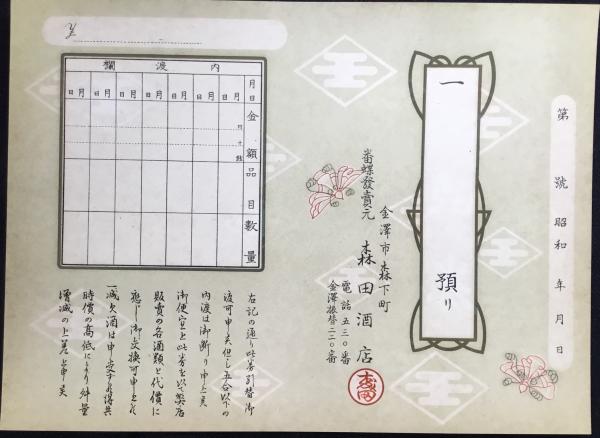 第　號
昭和　年　月　日
一　預り
金澤市森下町
番螺發賣元　森田酒店
電話五三〇番
金澤振替二二〇番
内渡欄
月日
月日
月日
月日
月日
月日
月日
金額
円
十
銭
品目
数量
右記の通り此券引替御
渡可申候但し五合以下の
内渡は御断り申上候
御便宜と此券を以て弊店
販賣の各酒類と代價に
應じ御交換可申上候
一減欠酒は申受す候得共
時價の高低により舛量
増減の上差上申候